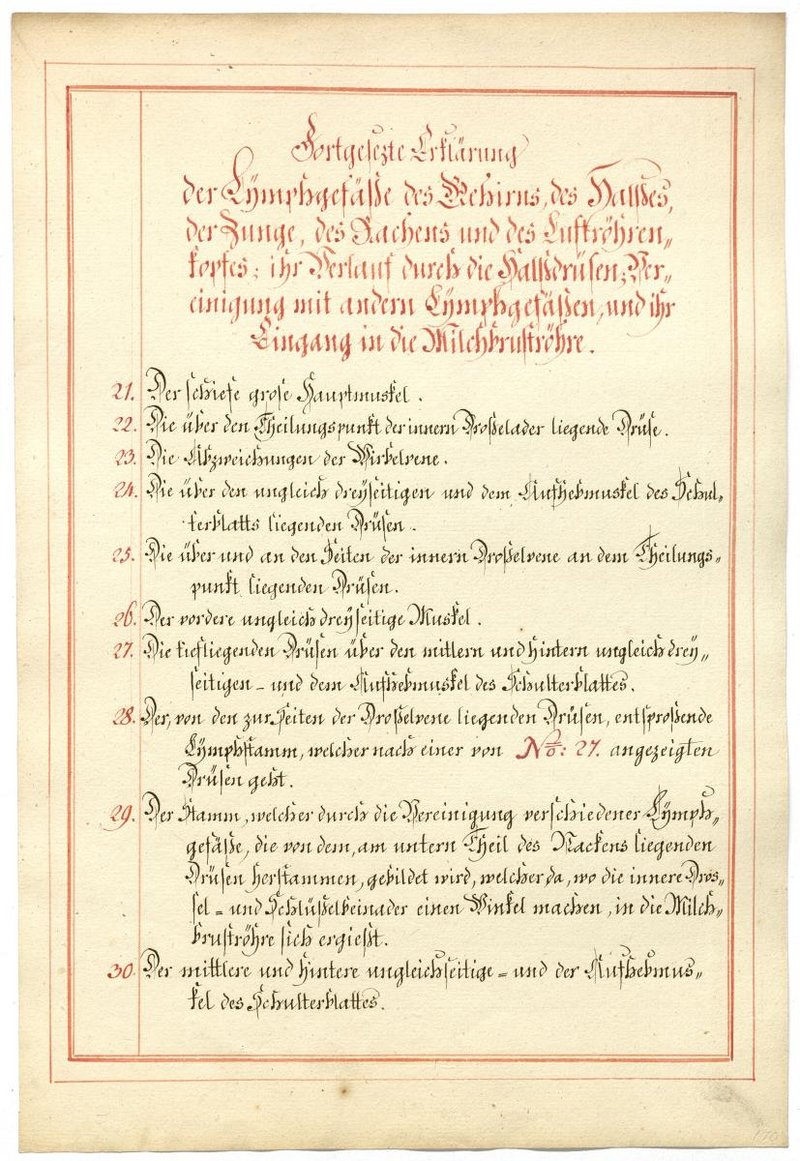 Fortgesezte Erklärung
der Lÿmphgefäße des Gehirns, des Halses,
der Zunge, des Rachens und des Luftröhren„
kopfes; ihr Verlauf durch die Halsdrüsen; Ver„
einigung mit andern Lÿmphgefäßen, und ihr
Eingang in die Milchbruströhre.
21. Der schiefe grose Hauptmuskel.
22. Die über den Theilungspunkt der innern Droßelader liegende Drüse.
23. Die Abzweichungen der Wirbelvene.
24. Die über den ungleich dreÿseitigen und dem Aufhebmuskel des Schul„
terblatts liegenden Drüsen.
25. Die über und an den Seiten der innern Droßelvene an dem Theilungs„
punkt liegenden Drüsen.
26. Der vordere ungleich dreÿseitige Muskel.
27. Die tiefliegenden Drüsen über den mittlern und hintern ungleich dreÿ„
seitigen – und dem Aufhebmuskel des Schulterblattes.
28. Der, von den zur Seiten der Droßelvene liegenden Drüsen, entsproßende
Lÿmphstamm, welcher nach einer von No: 27. angezeigten
Drüsen geht.
29. Der Stamm, welcher durch die Vereinigung verschiedener Lÿmph„
gefäße, die von dem, am untern Theil des Nackens liegenden
Drüsen herstammen, gebildet wird, welcher da, wo die innere Dros„
sel = und Schlüßelbeinader einen Winkel machen, in die Milch„
bruströhre sich ergießt.
30. Der mittlere und hintere ungleichseitige = und der Aufhebmus„
kel des Schulterblattes.